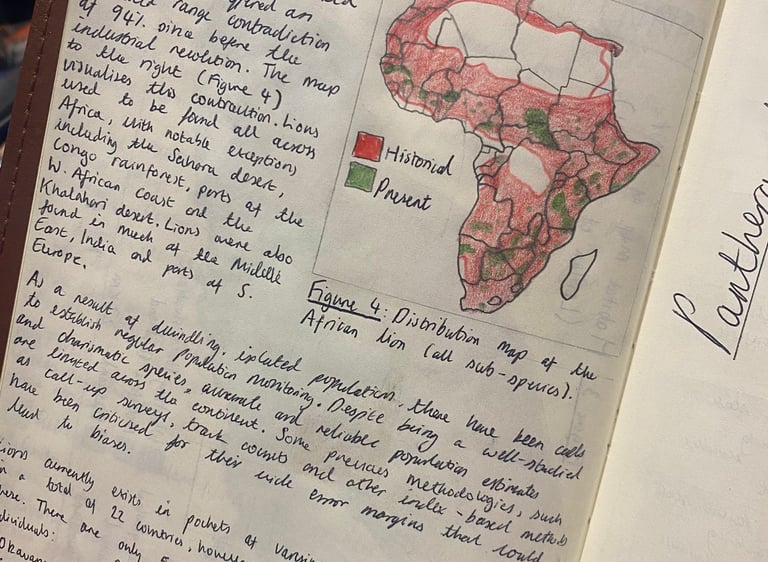 range contradiction
of 94% since before the
industrial revolution. The map
to the right (Figure 4)
visualises this contraction. Lions
used to be found all across
Africa, with notable exceptions
including the Sahara desert,
Congo rainforest, parts of the
W. African coast and the
Khalahari desert. Lions were also
found in much of the Middle
East, India and parts of S.
Europe.
Historical
Present
Figure 4: Distribution map of the
African lion (all sub-species).
As a result of dwindling, isolated population, there have been calls
to establish regular population monitoring. Despite being a well-studied
and charismatic species, accurate and reliable population estimates
are limited across the continent. Some previous methodologies, such
as call-up surveys, track counts and other index-based methods
have been criticised for their wide error margins that could
lead to biases.
Lions currently exists in pockets of
a total of 22 countries,
There are only
individuals:
Panther